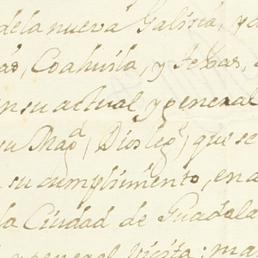 dela nueva Galicia, y d
as, Coahuila, y Texas,
en su actual y general
su Mag.d, (Dios le g.e) que se
a su cumplimento, en a
la Ciudad de Guadala
y general Visita; ma